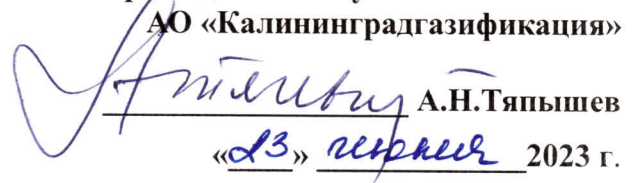 АО «Калининградгазификация»
А.Н.Тяпышев
«23» июня 2023 г.